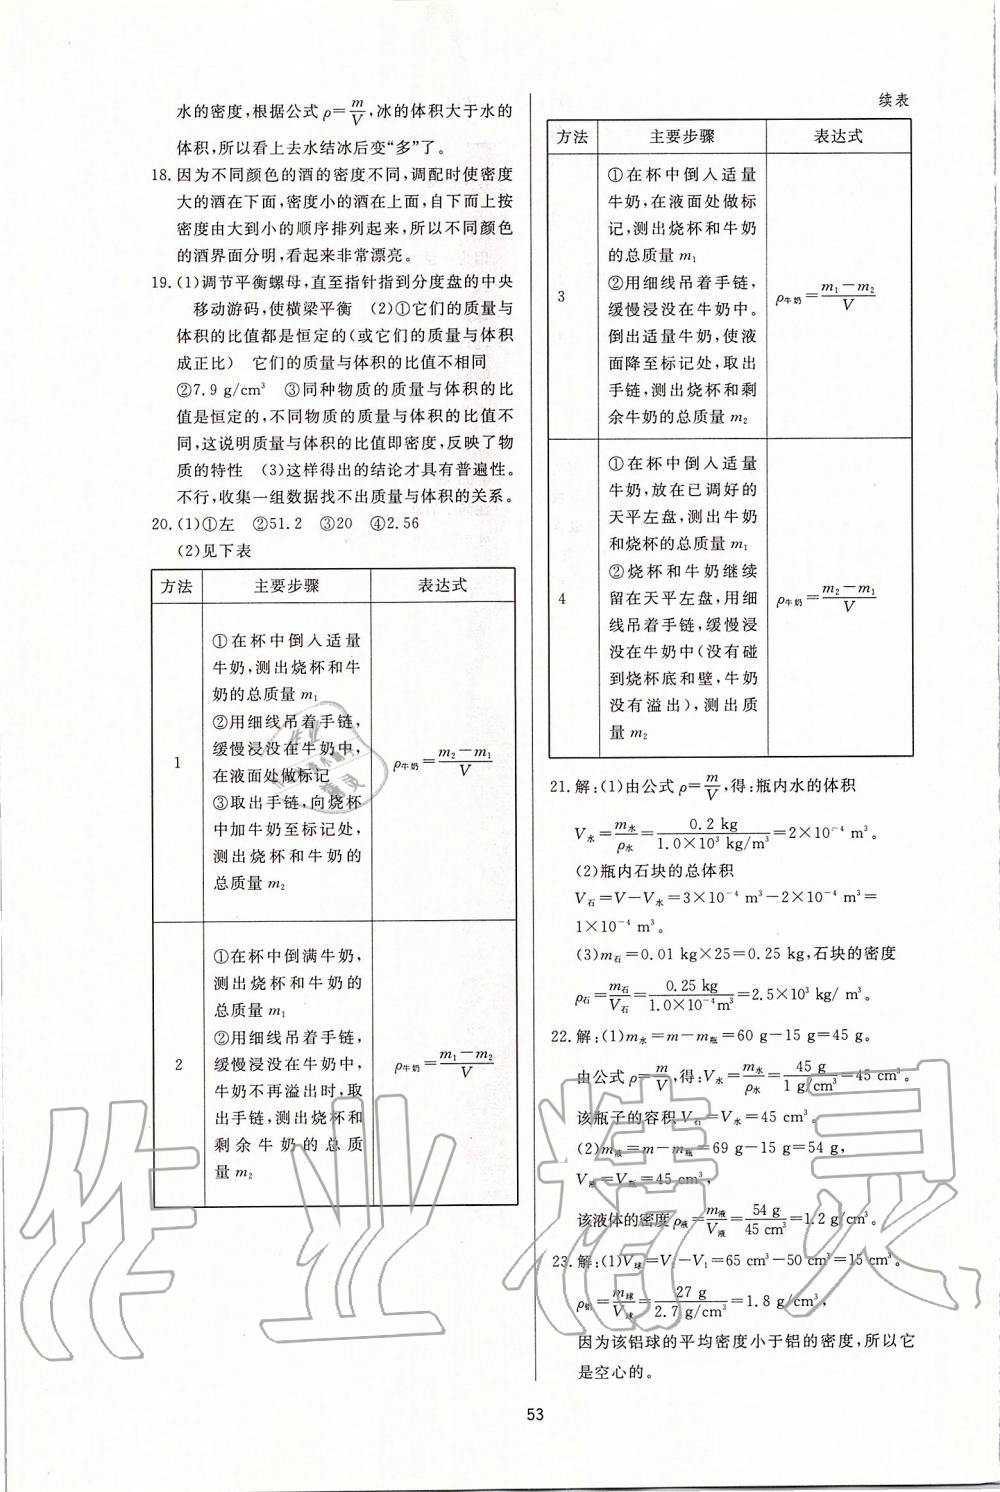 水的密度,根据公式 ρ=m/V,冰的体积大于水的
体积,所以看上去水结冰后变“多”了。
18.因为不同颜色的酒的密度不同,调配时使密度
大的酒在下面,密度小的酒在上面,自下而上按
密度由大到小的顺序排列起来,所以不同颜色
的酒界面分明,看起来非常漂亮。
19.(1)调节平衡螺母,直至指针指到分度盘的中央
移动游码,使横梁平衡 (2)①它们的质量与
体积的比值都是恒定的(或它们的质量与体积
成正比) 它们的质量与体积的比值不相同
②7.9 g/cm³ ③同种物质的质量与体积的比
值是恒定的,不同物质的质量与体积的比值不
同,这说明质量与体积的比值即密度,反映了物
质的特性 (3)这样得出的结论才具有普遍性。
不行,收集一组数据找不出质量与体积的关系。
20.(1)①左 ②51.2 ③20 ④2.56
(2)见下表
方法 主要步骤 表达式
1
①在杯中倒入适量
牛奶,测出烧杯和牛
奶的总质量 m₁
②用细线吊着手链,
缓慢浸没在牛奶中,
在液面处做标记
③取出手链,向烧杯
中加牛奶至标记处,
测出烧杯和牛奶的
总质量 m₂
ρ牛奶=(m₂−m₁)/V
2
①在杯中倒满牛奶,
测出烧杯和牛奶的
总质量 m₁
②用细线吊着手链,
缓慢浸没在牛奶中,
牛奶不再溢出时,取
出手链,测出烧杯和
剩余牛奶的总质
量 m₂
ρ牛奶=(m₁−m₂)/V
续表
方法 主要步骤 表达式
3
①在杯中倒入适量
牛奶,在液面处做标
记,测出烧杯和牛奶
的总质量 m₁
②用细线吊着手链,
缓慢浸没在牛奶中。
倒出适量牛奶,使液
面降至标记处,取出
手链,测出烧杯和剩
余牛奶的总质量 m₂
ρ牛奶=(m₁−m₂)/V
4
①在杯中倒入适量
牛奶,放在已调好的
天平左盘,测出牛奶
和烧杯的总质量 m₁
②烧杯和牛奶继续
留在天平左盘,用细
线吊着手链,缓慢浸
没在牛奶中(没有碰
到烧杯底和壁,牛奶
没有溢出),测出质
量 m₂
ρ牛奶=(m₂−m₁)/V
21.解:(1)由公式 ρ=m/V,得:瓶内水的体积
V水=m水/ρ水=0.2 kg/(1.0×10³ kg/m³)=2×10⁻⁴ m³。
(2)瓶内石块的总体积
V石=V−V水=3×10⁻⁴ m³−2×10⁻⁴ m³=
1×10⁻⁴ m³。
(3)m石=0.01 kg×25=0.25 kg,石块的密度
ρ石=m石/V石=0.25 kg/(1.0×10⁻⁴m³)=2.5×10³ kg/ m³。
22.解:(1)m水=m−m瓶=60 g−15 g=45 g。
由公式 ρ=m/V,得:V水=m水/ρ水=45 g/(1 g/cm³)=45 cm³。
该瓶子的容积 V石=V水=45 cm³。
(2)m液=m−m瓶=69 g−15 g=54 g,
V液=V瓶=45 cm³,
该液体的密度 ρ液=m液/V液=54 g/45 cm³=1.2 g/cm³。
23.解:(1)V球=V₂−V₁=65 cm³−50 cm³=15 cm³。
ρ铝=m球/V球=27 g/(2.7 g/cm³)=1.8 g/cm³,
因为该铝球的平均密度小于铝的密度,所以它
是空心的。
53
作业精灵